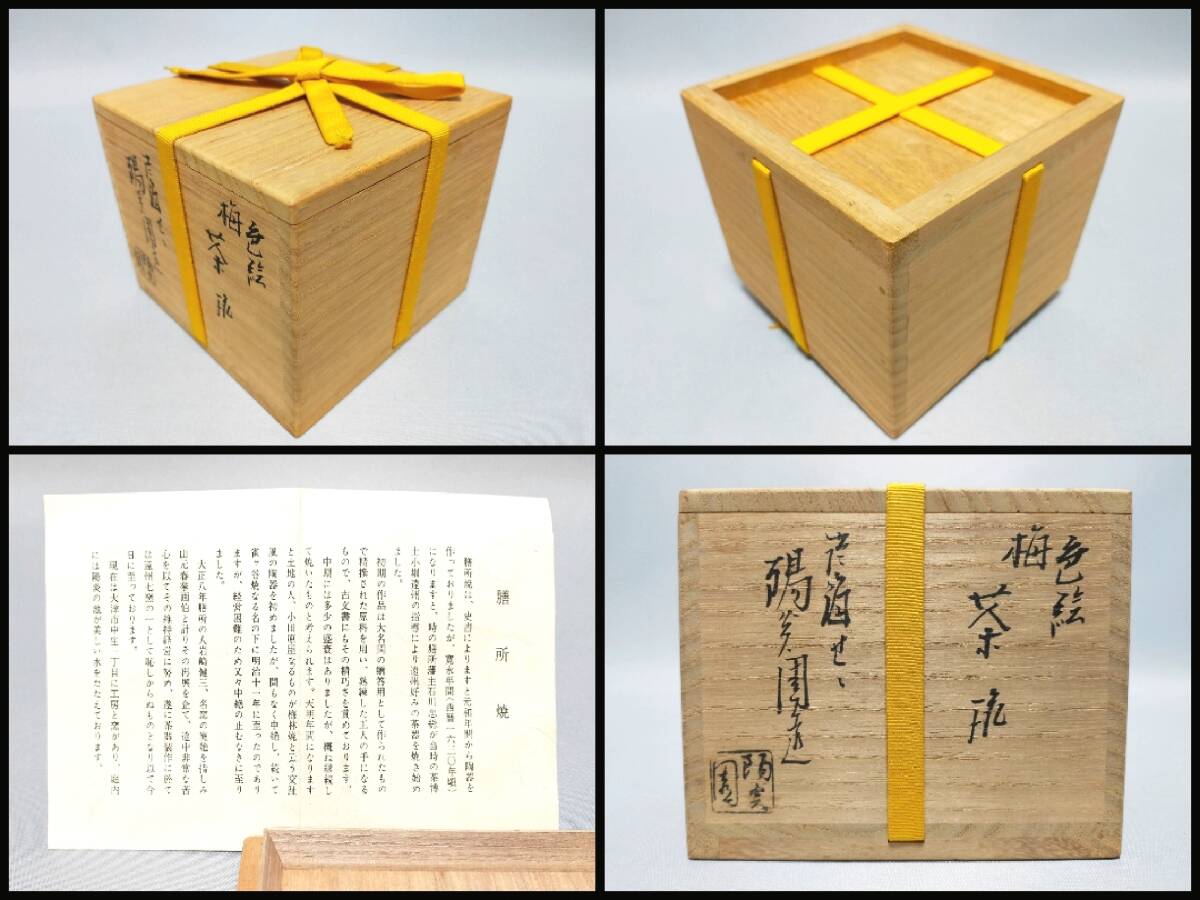 色絵
梅 茶碗
色絵
梅 茶碗
膳所焼
陽炎園造
陽炎園
膳所焼
膳所焼は、史書によりますと元和年間から陶器を
作っておりましたが、寛永年間(西暦一六二〇年頃)
になりますと、時の膳所藩主石川忠総が当時の茶博
士小堀遠州の指導により遠州好みの茶器を焼き始め
ました。
初期の作品は大名間の贈答用として作られたもの
で精撰された原料を用い、熟練した工人の手になる
もので、古文書にもその精巧さを賞めております。
中期には多少の盛衰はありましたが、概ね継続し
て焼いたものと考えられます。天明年間になります
と土地の人、小田原屋なるものが梅林焼と云う交趾
風の陶器を初めましたが、間もなく中絶し、続いて
雀ヶ谷焼なる名の下に明治十一年に至ったのであり
ますが、経営困難のため又々中絶の止むなきに至り
ました。
大正八年膳所の人岩崎健三、名窯の廃絶を惜しみ
山元春挙画伯と計りその再興を企て、途中非常な苦
心を以てその維持経営に努め、遂に茶器製作に於て
は遠州七窯の一として恥しからぬものとなり以て今
日に至っております。
現在は大津市中庄一丁目に工房と窯があり、庭内
には陽炎の池が美しい水をたたえております。